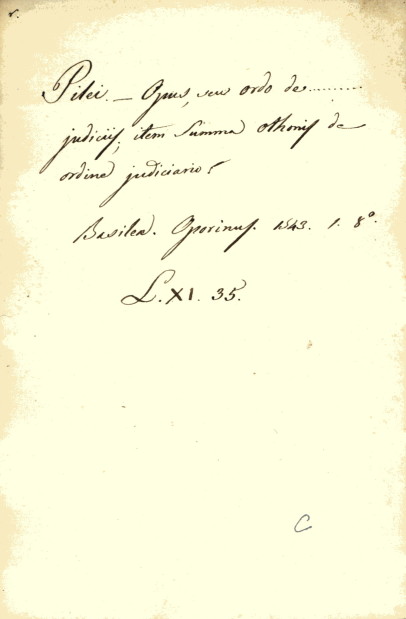 r.
Pilei. — Opus, seu ordo de ..........
judiciis; item Summa othonis de
ordine judiciario.
Basilea. Oporinus. 1543. 1. 8°.
L. XI. 35.
C